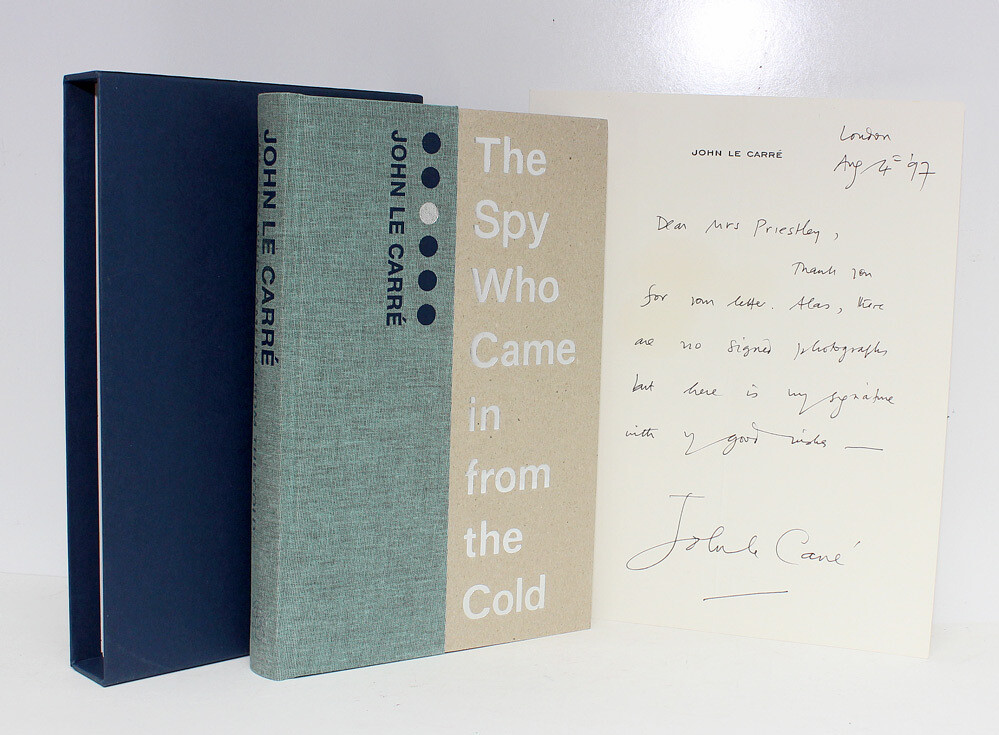 JOHN LE CARRÉ
JOHN LE CARRÉ
The
Spy
Who
Came
in
from
the
Cold
JOHN LE CARRÉ
London
Aug 4th '97
Dear Mrs Priestley,
Thank you
for your letter. Alas, there
are no signed photographs
but here is my signature
with my good wishes —
John le Carré